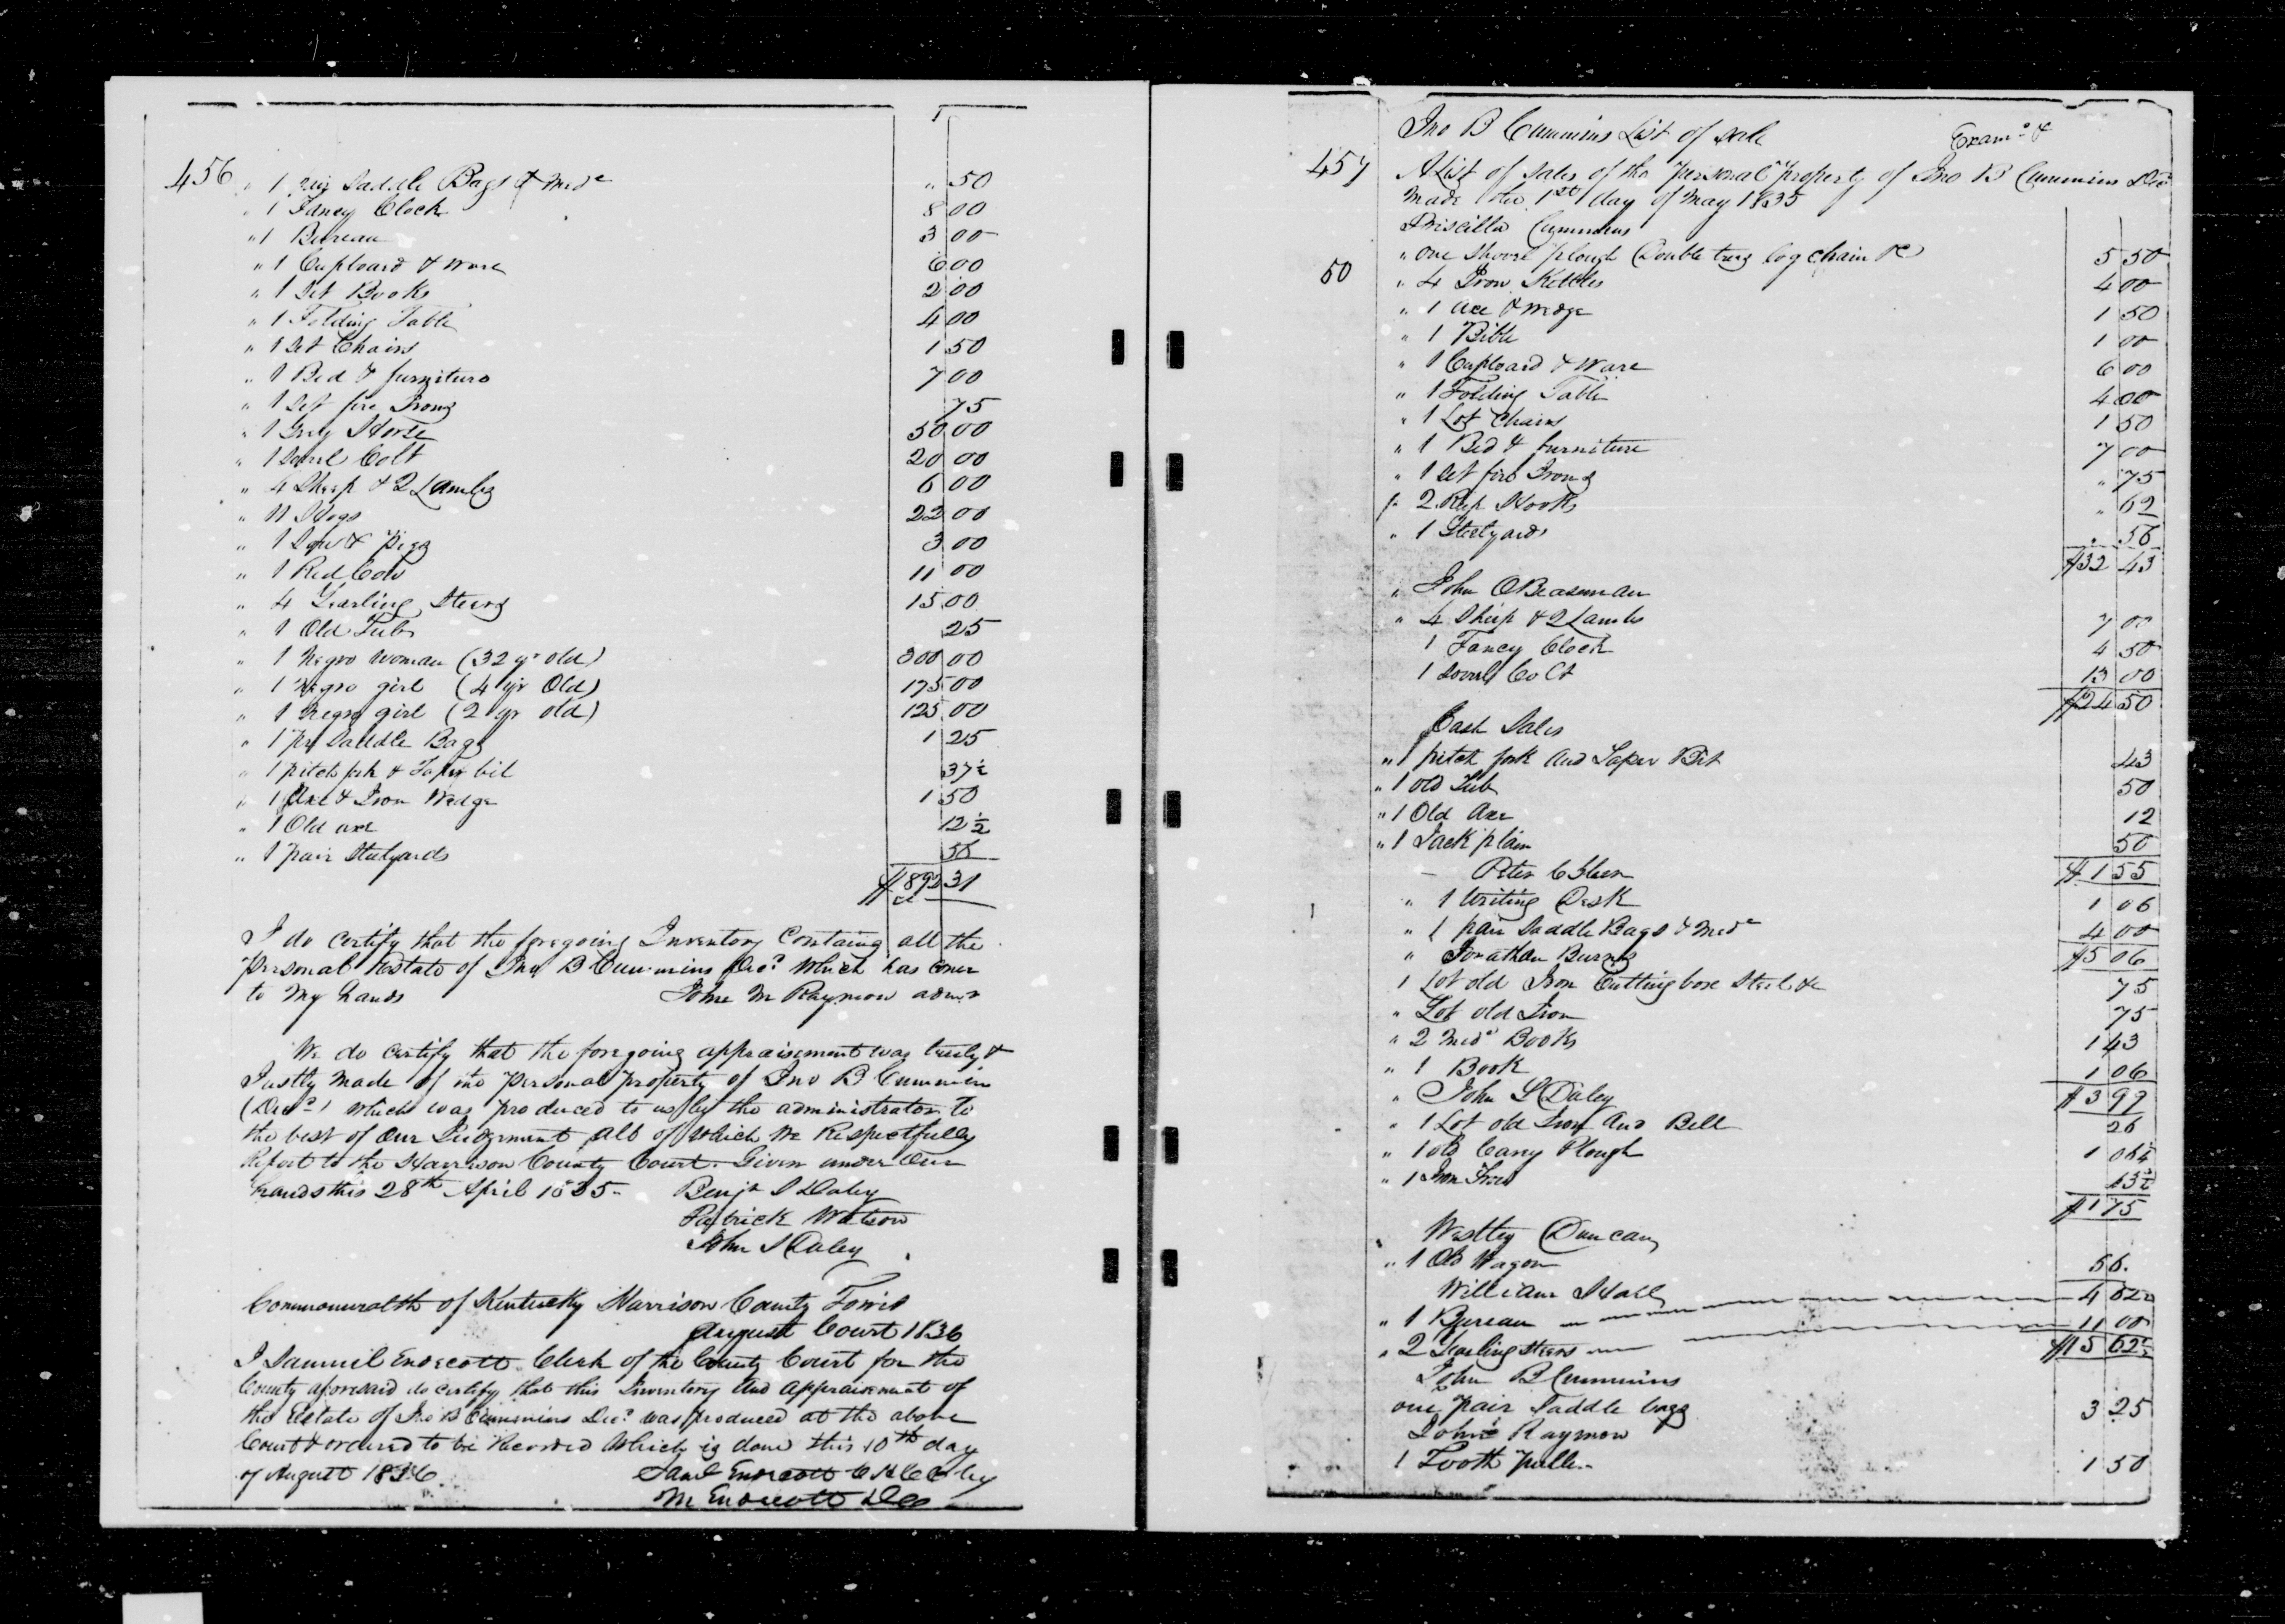 456 " 1 pair Saddle Bags & Medc " 50
" 1 Fancy Clock 8 00
" 1 Bureau 3 00
" 1 Cupboard & Ware 6 00
" 1 Set Books 2 00
" 1 Folding Table 4 00
" 1 Set Chairs 1 50
" 1 Bed & furniture 7 00
" 1 Set fire Irons 75
" 1 Grey Horse 50 00
" 1 Sorrel Colt 20 00
" 4 Sheep & 2 Lambs 6 00
" 11 Hogs 22 00
" 1 Sow & Pigs 3 00
" 1 Red Cow 11 00
" 4 Yearling Steers 15 00
" 1 Old Tub 25
" 1 Negro Woman (32 yr old) 300 00
" 1 Negro girl (4 yr Old) 175 00
" 1 Negro girl (2 yr old) 125 00
" 1 pr Saddle Bags 1 25
" 1 pitch fork & Taper bit 37½
" 1 Axe & Iron Wedge 1 50
" 1 Old axe 12½
" 1 pair Stilyards 56
$892 31
I do certify that the foregoing Inventory Containg all the
personal Estate of Jno B Cummins Decd which has come
to my hands John M Raymon admr
We do certify that the foregoing appraisement was truly &
Justly made of the personal property of Jno B Cummin
(Decd) which was produced to us by the administrator To
the best of our Judgement all of which We Respectfully
Report to the Harrison County Court. Given under Our
hands this 28th April 1835 Benja S Daley
Patrick Watson
John S Daley
Commonwealth of Kentucky Harrison County Towit
August Court 1836
I Samuel Endecott Clerk of the County Court for the
County aforesaid do certify that this Inventory and appraisement of
the Estate of Jno B Cummins Decd was produced at the above
Court & ordered to be Recorded which is done this 10th day
of August 1836 Saml Endecott C H C C by
M Endecott DC
Jno B Cummins List of Sale Examd &
457 A List of Sales of the personal property of Jno B Cummins Decd
made the 1st day of May 1835
Priscilla Cummins
" one Shovel plough Double trees log chain &c 5 50
50 " 4 Iron Kettles 4 00
" 1 axe & wedge 1 50
" 1 Bible 1 00
" 1 Cupboard & Ware 6 00
" 1 Folding Table 4 00
" 1 Lot Chairs 1 50
" 1 Bed & furniture 7 00
" 1 Set fire Irons " 75
" 2 Reep Hooks " 62
" 1 Steelyards " 56
$32 43
" John O Beasman
" 4 Sheep & 2 Lambs 7 00
1 Fancy Clock 4 50
1 Sorrel Colt 13 00
$24 50
Cash Sales
" 1 pitch fork and Taper Bit 43
" 1 old Tub 50
" 1 Old Axe 12
" 1 Jack plain 50
$1 55
Peter
" 1 Writing Desk 1 06
" 1 pair Saddle Bags & Medc 4 00
$5 06
" Jonathan Burns
1 Lot old Iron Cutting box Steel &c 75
" Lot old Iron 75
" 2 Medc Books 1 43
" 1 Book 1 06
$3 99
" John S Daley
" 1 Lot old Iron and Bell 26
" 1 old Carey Plough 1 06¼
" 1 Iron 43½
$1 75
" Westley Duncan
" 1 Old Wagon 56.
William Hall
" 1 Bureau 4 62½
" 2 Yearling Steers 11 00
$15 62½
John B Cummins
one pair Saddle bags 3 25
John Raymon
1 Tooth puller 1 50